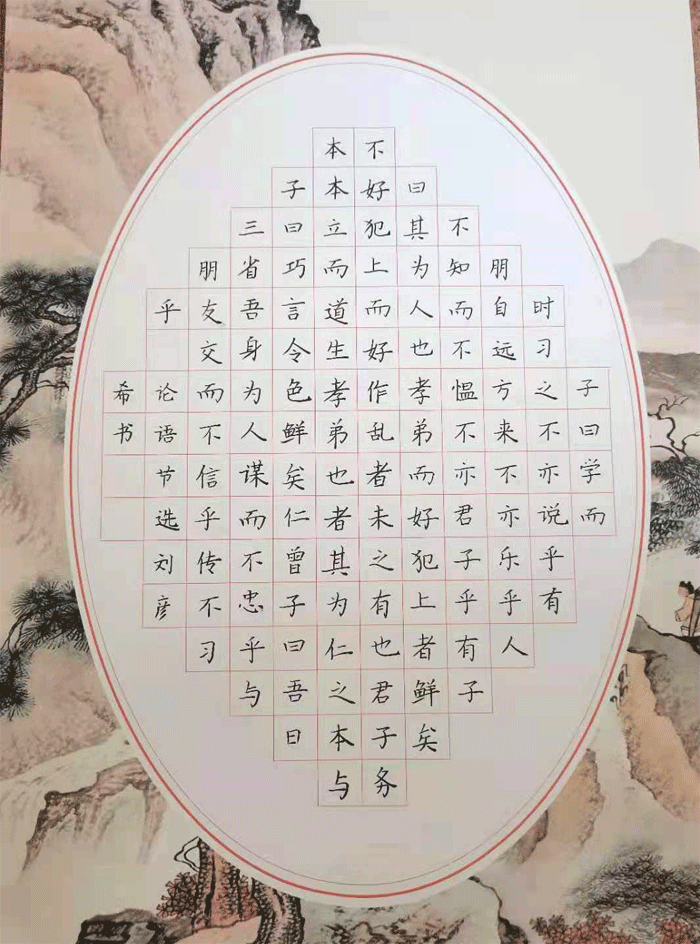 子曰学而
时习之不亦说乎有
朋自远方来不亦乐乎人
不知而不愠不亦君子乎有子
曰其为人也孝弟而好犯上者鲜矣
不好犯上而好作乱者未之有也君子务
本本立而道生孝弟也者其为仁之本与
子曰巧言令色鲜矣仁曾子曰吾日
三省吾身为人谋而不忠乎与
朋友交而不信乎传不习
乎 论语节选刘彦
希书